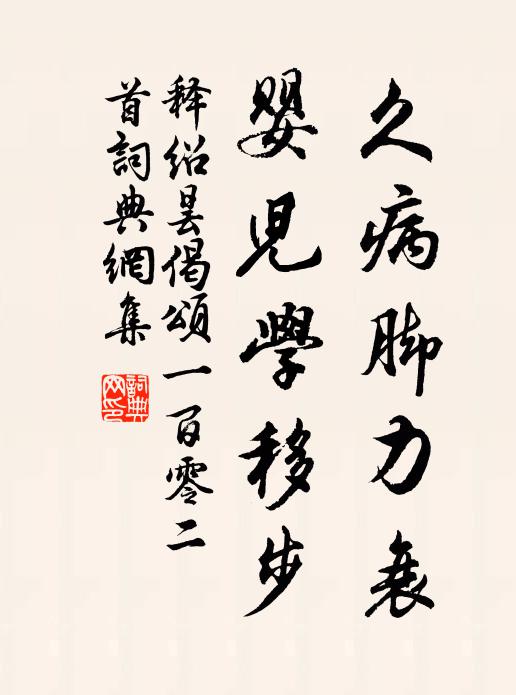 久病脚力衰
嬰児學移步
释绍昙偈頌一百零二
首詞典網集
詞典網印